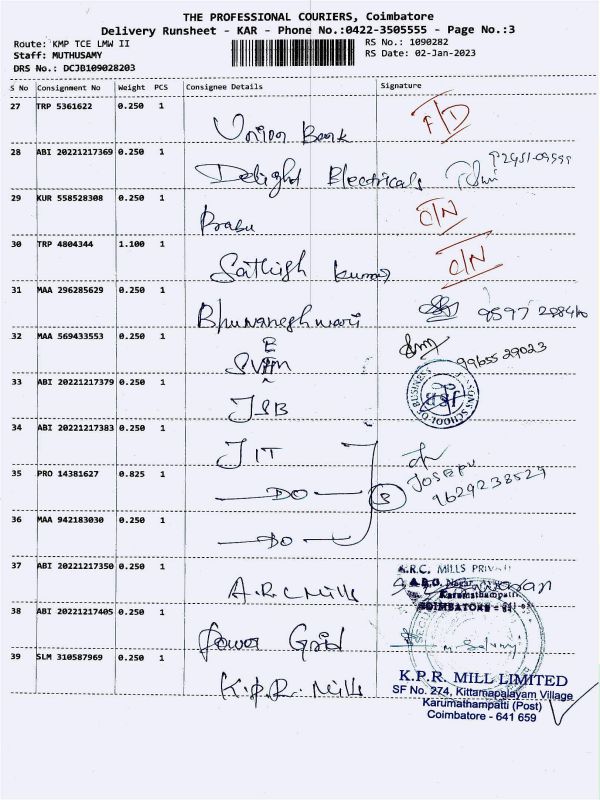 THE PROFESSIONAL COURIERS, Coimbatore
Delivery Runsheet - KAR - Phone No.:0422-3505555 - Page No.:3
Route: KMP TCE LMW II
RS No.: 1090282
Staff: MUTHUSAMY
RS Date: 02-Jan-2023
DRS No.: DCJB109028203
S No Consignment No Weight PCS Consignee Details Signature
27 TRP 5361622 0.250 1
Union Bank F/D
28 ABI 20221217369 0.250 1
Delight Electricals
29 KUR 558528308 0.250 1
Prabu C/N
30 TRP 4804344 1.100 1
Sathish Kumar C/N
31 MAA 296285629 0.250 1
Bhuvaneshwari
32 MAA 569433553 0.250 1
9965529023
33 ABI 20221217379 0.250 1
JSB
SCHOOL OF BUSINESS
34 ABI 20221217383 0.250 1
JIT
35 PRO 14381627 0.825 1
DO
JOSEPH
9629238529
36 MAA 942183030 0.250 1
DO
37 ABI 20221217350 0.250 1
A.R.C Mills
A.R.C. MILLS PRIVATE
Karumathampatti
COIMBATORE
38 ABI 20221217405 0.250 1
Power Grid
39 SLM 310587969 0.250 1
K.P.R. Mills
K.P.R. MILL LIMITED
SF No. 274, Kittampalayam Village
Karumathampatti (Post)
Coimbatore - 641 659